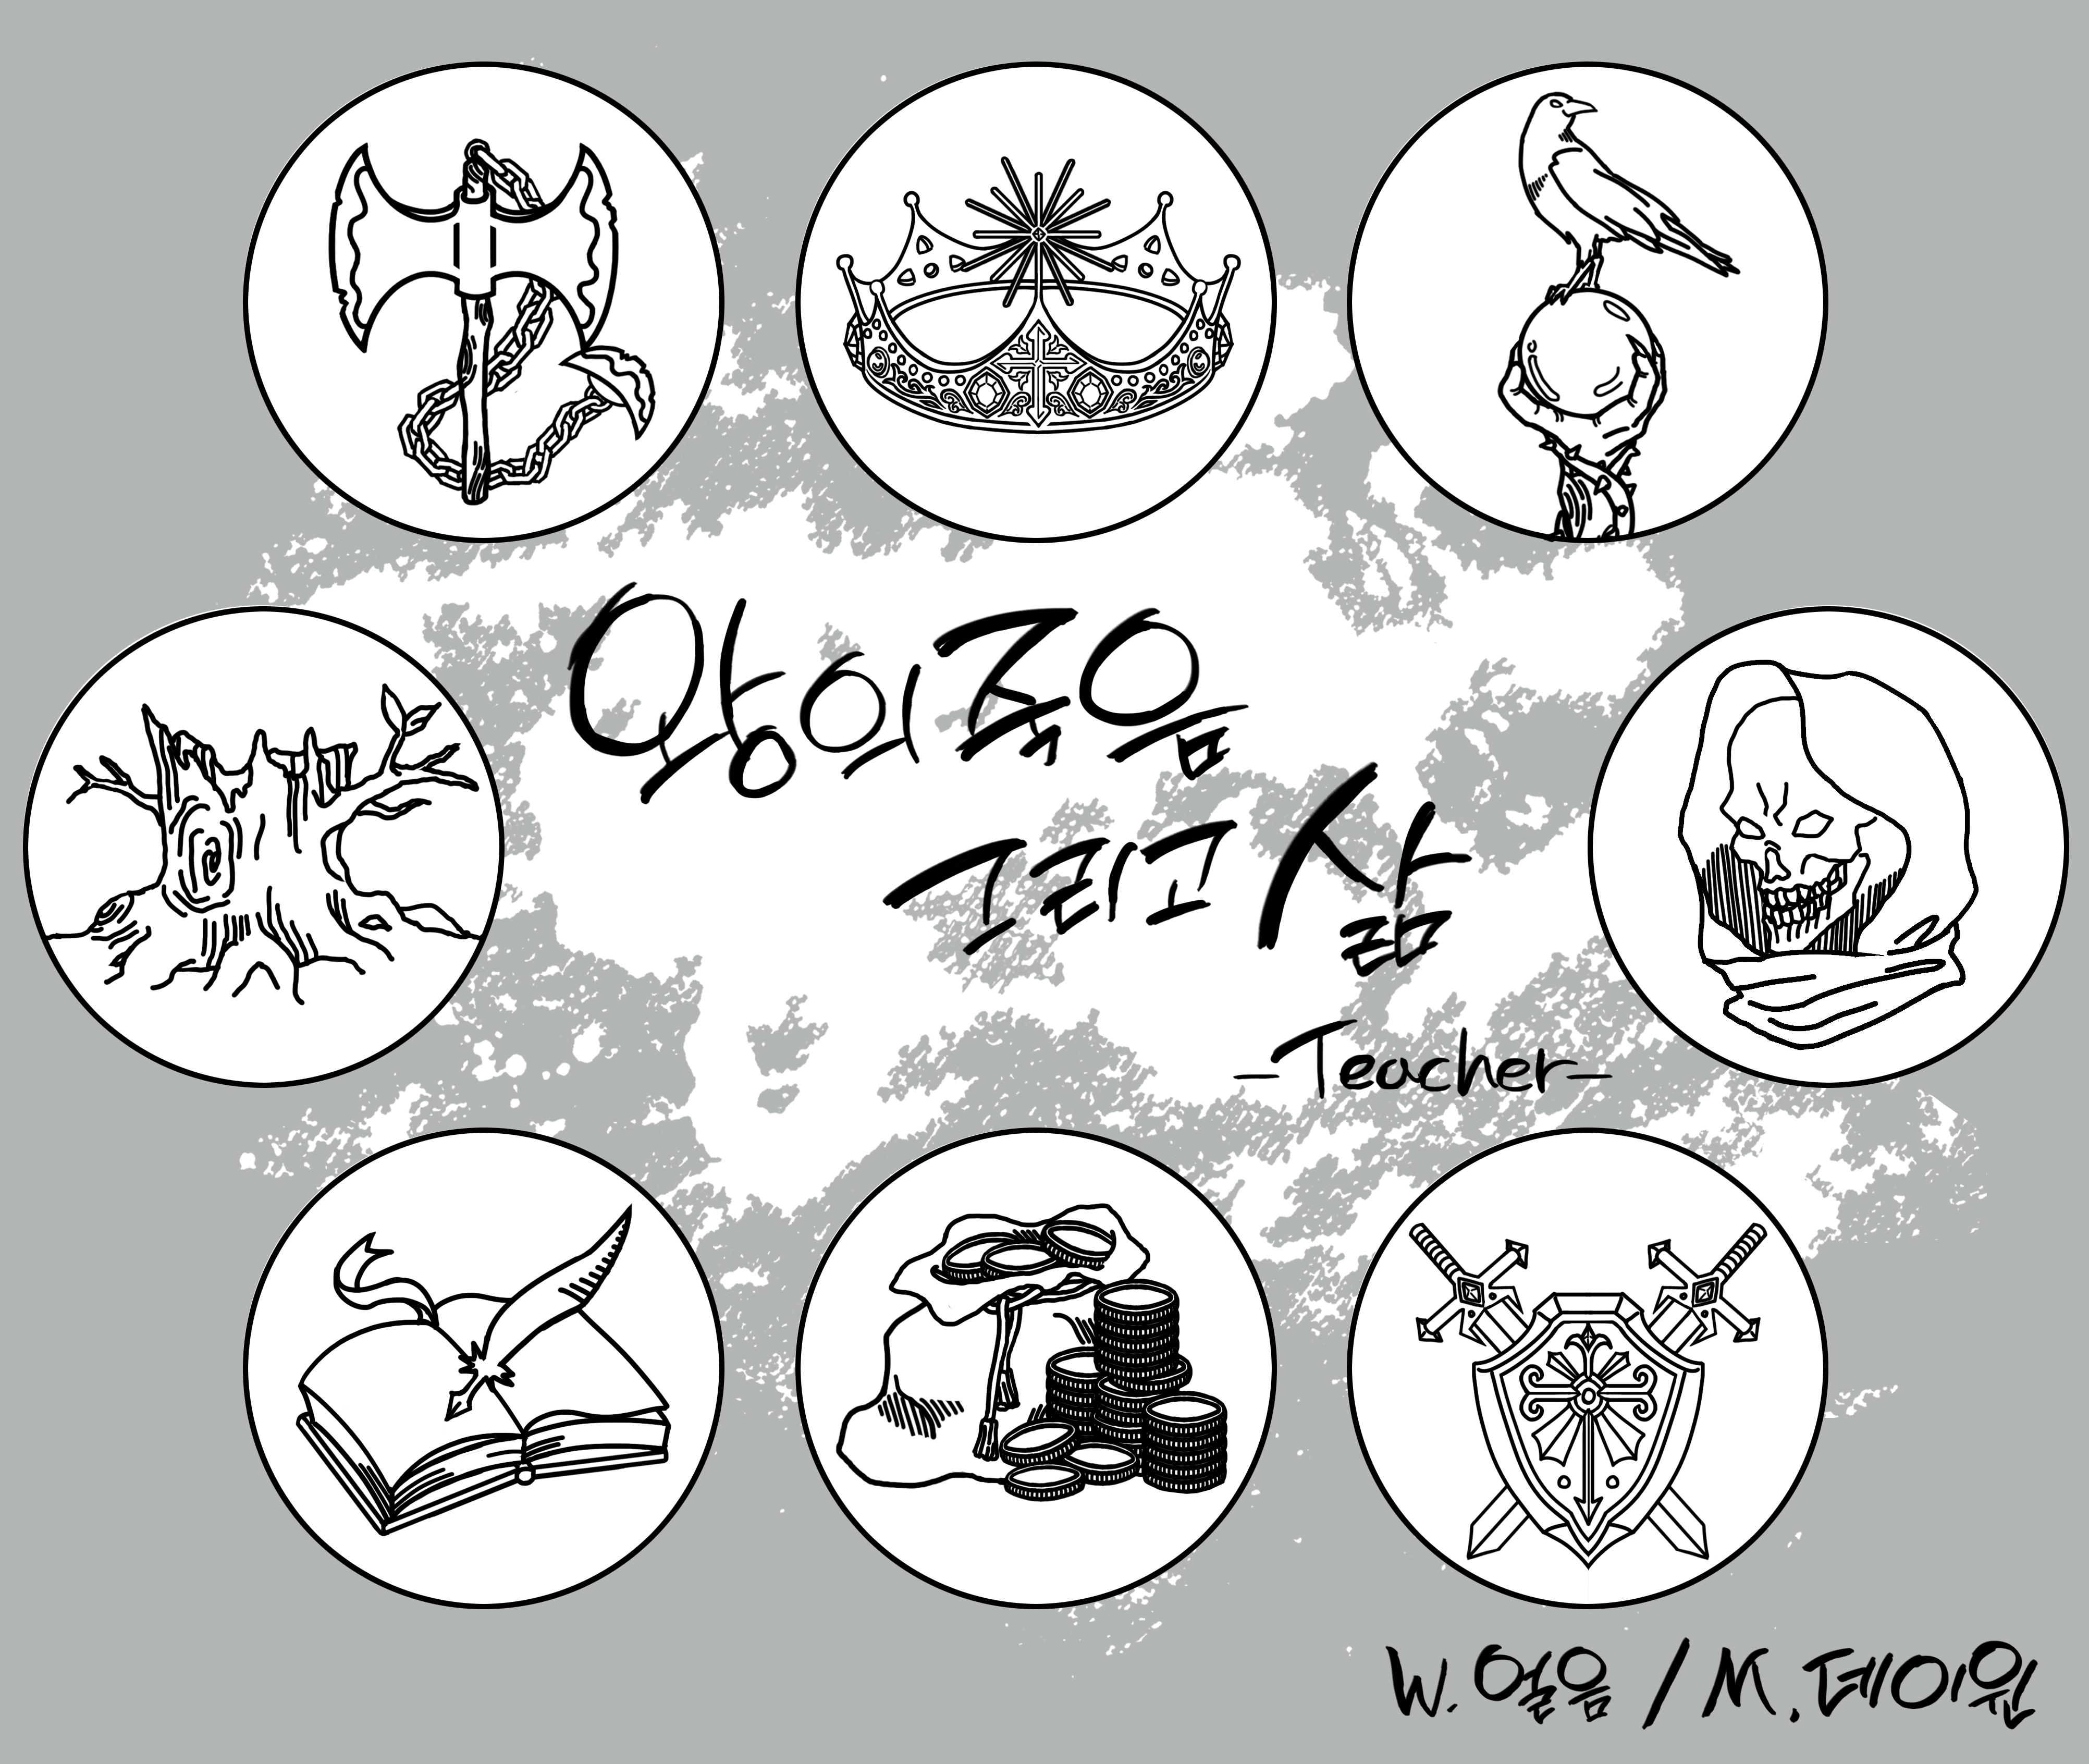 왕의 죽음
그리고 삶
-Teacher-
W. 얼음 / M. 테이윈